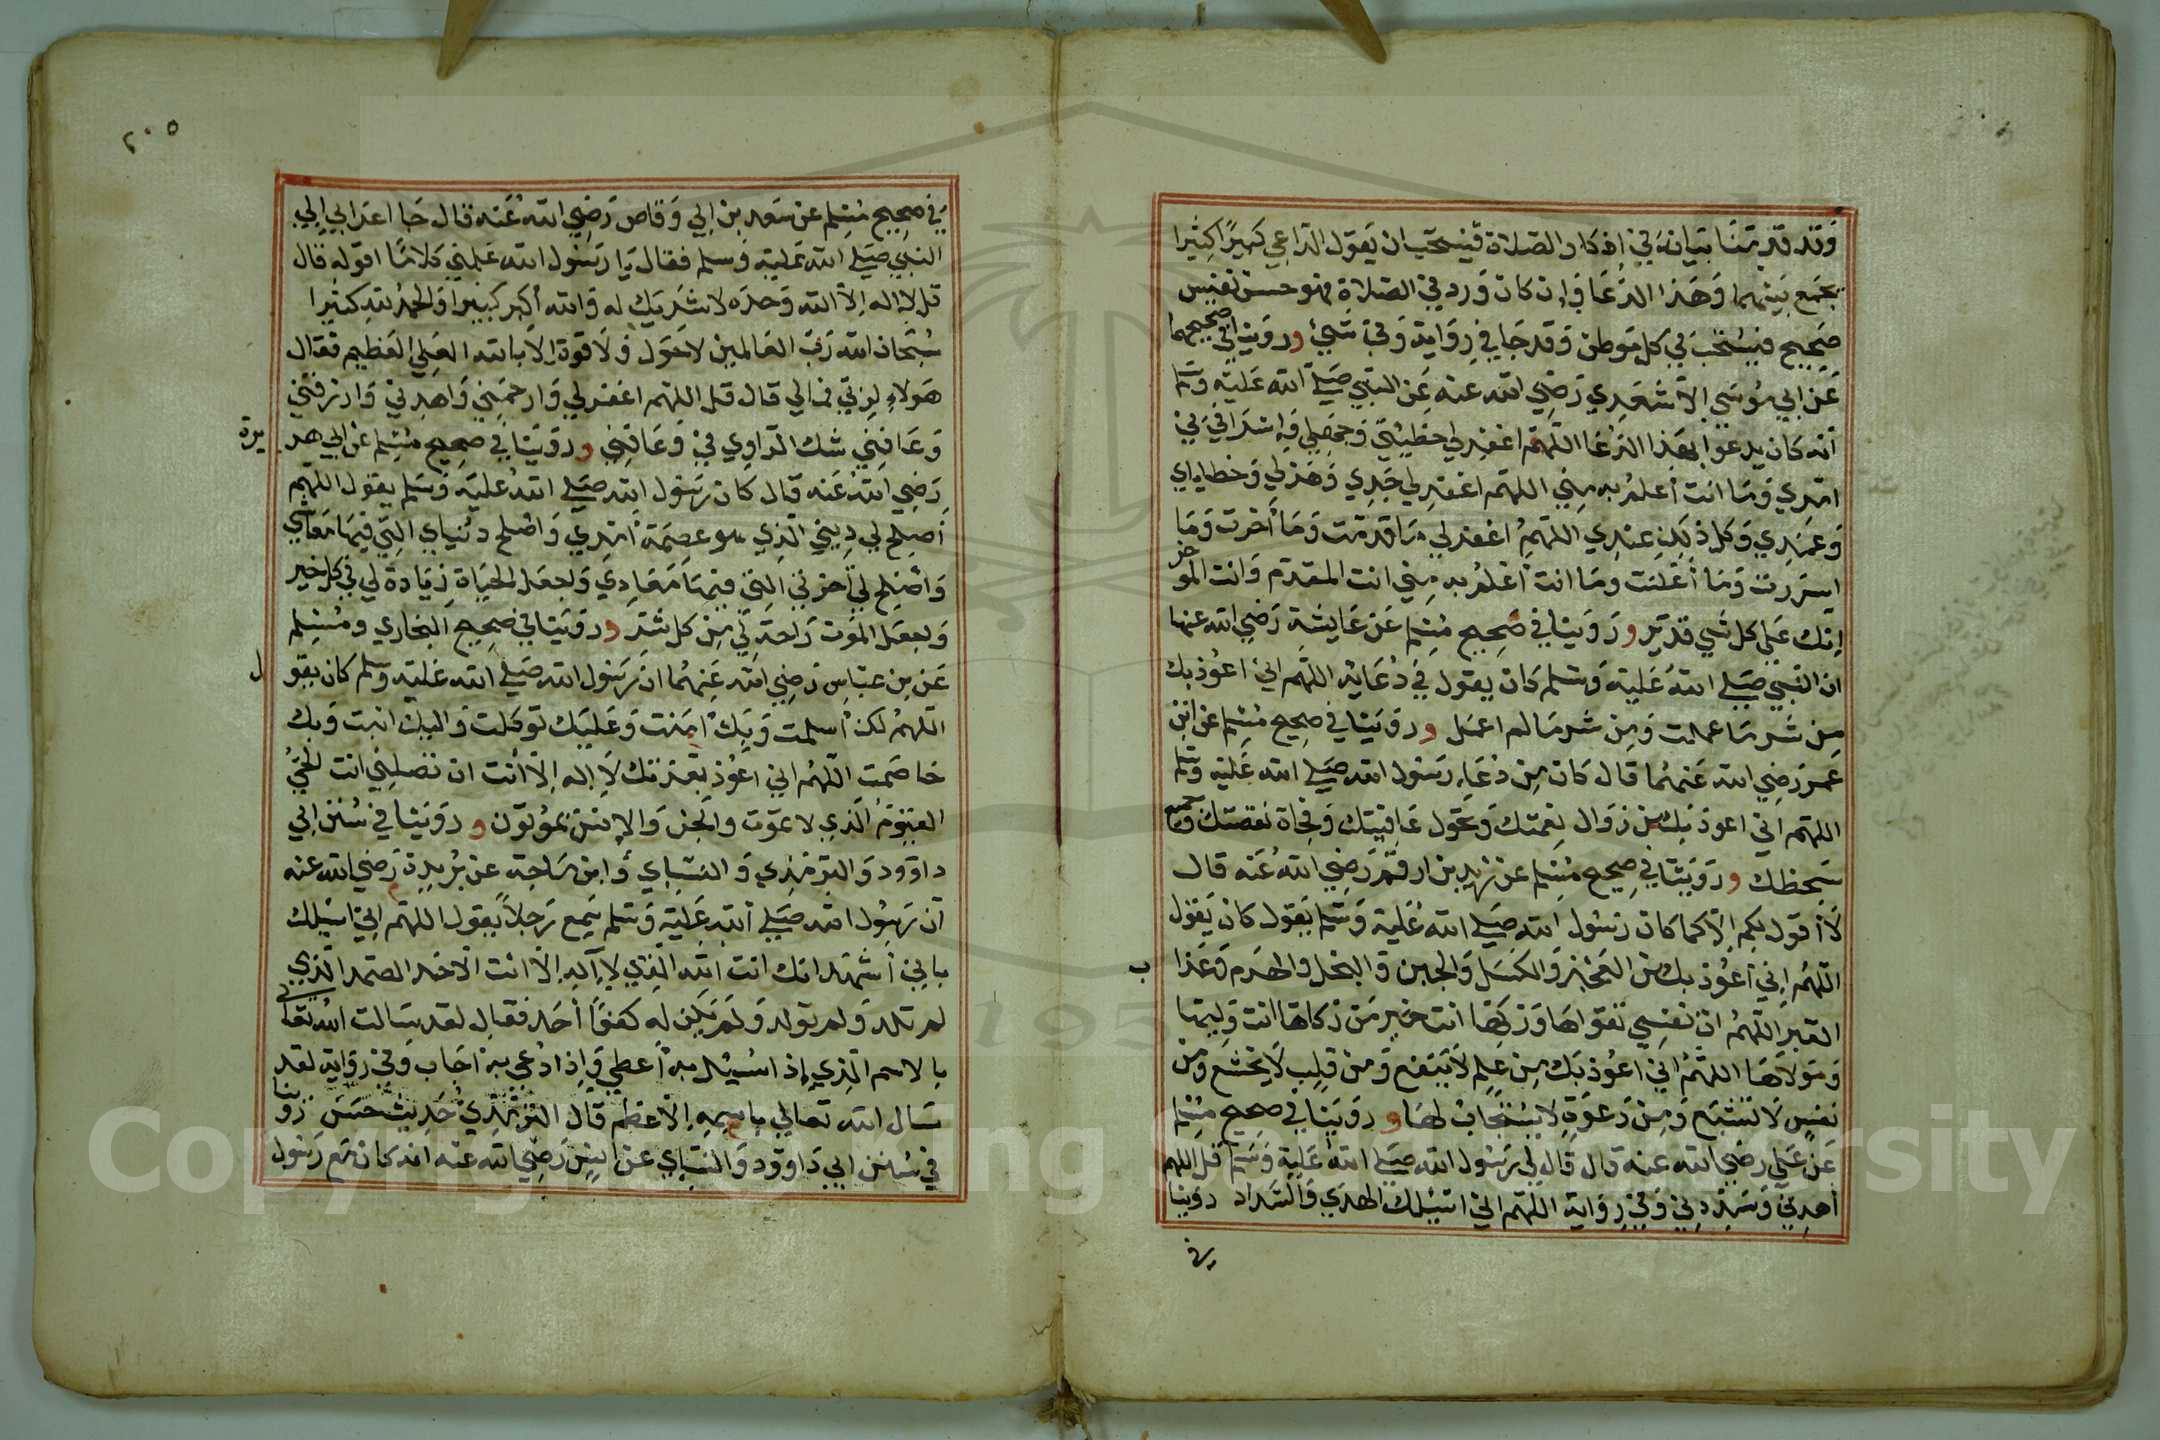 وقد قدمنا بيانه في اذكار الصلاة فيستحب ان يقول الداعي كبيرا كثيرا
يجمع بينهما وهذا الدعا وان كان ورد في الصلاة فهو حسن نفيس
صحيح فيستحب في كل موطن وقد جا في رواية وفي بيتي وروينا في صحيحهما
عن ابي موسي الاشعري رضي الله عنه عن النبي صلي الله عليه وسلم
انه كان يدعوا بهذا الدعا اللهم اغفر لي خطيئتي وجهلي واسرافي في
امري وما انت اعلم به مني اللهم اغفر لي جدي وهزلي وخطاياي
وعمدي وكل ذلك عندي اللهم اغفر لي ما قدمت وما أخرت وما
اسررت وما أعلنت وما انت اعلم به مني انت المقدم وانت المؤخر
انك علي كل شي قدير وروينا في صحيح مسلم عن عايشة رضي الله عنها
ان النبي صلي الله عليه وسلم كان يقول في دعايه اللهم اني اعوذ بك
من شر ما عملت ومن شر ما لم اعمل وروينا في صحيح مسلم عن ابن
عمر رضي الله عنهما قال كان من دعاء رسول الله صلي الله عليه وسلم
اللهم اني اعوذ بك من زوال نعمتك وتحول عافيتك وفجأة نقمتك وجميع
سخطك وروينا في صحيح مسلم عن زيد بن ارقم رضي الله عنه قال
لا أقول لكم الا كما كان رسول الله صلي الله عليه وسلم يقول كان يقول
اللهم اني أعوذ بك من العجز والكسل والجبن والبخل والهرم وعذاب
القبر اللهم ات نفسي تقواها وزكها انت خير من زكاها انت وليها
ومولاها اللهم اني اعوذ بك من علم لا ينفع ومن قلب لا يخشع ومن
نفس لا تشبع ومن دعوة لا يستجاب لها وروينا في صحيح مسلم
عن علي رضي الله عنه قال قال لي رسول الله صلي الله عليه وسلم قل اللهم
أهدني وسددني وفي رواية اللهم اني اسئلك الهدي والسداد روينا
في
٢٠٥
في صحيح مسلم عن سعد بن ابي وقاص رضي الله عنه قال جا اعرابي الي
النبي صلي الله عليه وسلم فقال يا رسول الله علمني كلاما اقوله قال
قل لا اله الا الله وحده لا شريك له والله أكبر كبيرا والحمد لله كثيرا
سبحان الله رب العالمين لا حول ولا قوة الا بالله العلي العظيم فقال
هولاء لربي فمالي قال قل اللهم اغفر لي وارحمني واهدني وارزقني
وعافني شك الراوي في وعافني وروينا في صحيح مسلم عن ابي هريرة
رضي الله عنه قال كان رسول الله صلي الله عليه وسلم يقول اللهم
أصلح لي ديني الذي هو عصمة أمري واصلح دنياي التي فيها معاشي
واصلح لي أخرتي التي فيها معادي واجعل الحياة زيادة لي في كل خير
واجعل الموت راحة لي من كل شر وروينا في صحيح البخاري ومسلم
عن بن عباس رضي الله عنهما ان رسول الله صلي الله عليه وسلم كان يقول
اللهم لك أسلمت وبك امنت وعليك توكلت واليك انبت وبك
خاصمت اللهم اني اعوذ بعزتك لا اله الا أنت ان تضلني انت الحي
القيوم الذي لا يموت والجن والإنس يموتون وروينا في سنن ابي
داوود والترمذي والنسائي وابن ماجة عن بريدة رضي الله عنه
أن رسول الله صلي الله عليه وسلم سمع رجلا يقول اللهم اني اسئلك
باني أشهد انك انت الله الذي لا آله الا انت الأحد الصمد الذي
لم تلد ولم تولد ولم يكن له كفوا أحد فقال لقد سالت الله تعالي
بالاسم الذي إذا سئل به أعطي وإذا دعي به اجاب وفي رواية لقد
سال الله تعالي باسمه الأعظم قال الترمذي حديث حسن روينا
في سنن ابي داوود والنسائي عن انس رضي الله عنه انه كان مع رسول
Copyright © King Saud University
195